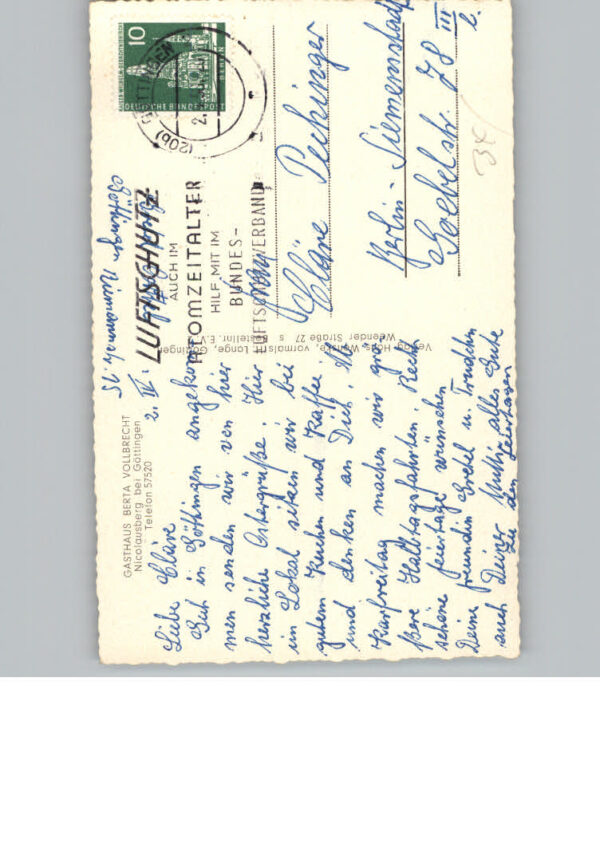 GASTHAUS BERTA VOLLBRECHT
Nicolausberg bei Göttingen
Telefon 57520
2. IV.
Liebe Cläre
Gut in Göttingen angekom
men senden wir von hier
herzliche Ostergrüße. Hier
im Lokal sitzen wir bei
gutem Kuchen und Kaffee
und denken an Dich. Ab
Karfreitag machen wir grö-
ßere Halbtagsfahrten. Recht
schöne Feiertage wünschen
Deine Freundin Gretel u. Trudchen
auch Deiner Mutti alles Gute
zu den Feiertagen
Verlag Hans Wenske, vormals st. Lange, Göttingen
Weender Straße 27
Göttingen 15.
10
DEUTSCHE BUNDESPOST
BERLIN
(20b) GÖTTINGEN
LUFTSCHUTZ
AUCH IM
ATOMZEITALTER
HILF MIT IM
BUNDES-
LUFTSCHUTZVERBAND
Frau
Cläre Pechinger
Berlin-Siemensstadt
Goebelstr. 78 III